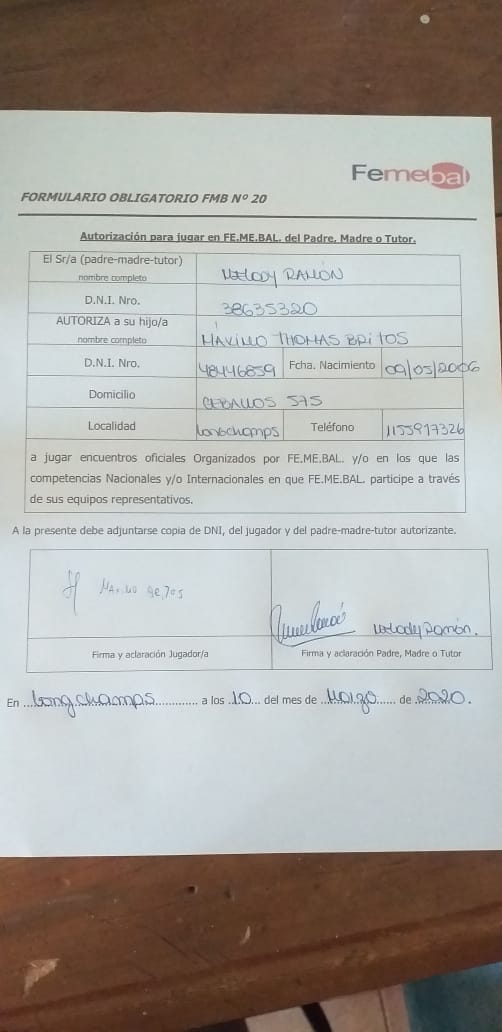 Femebal
FORMULARIO OBLIGATORIO FMB Nº 20
Autorización para jugar en FE.ME.BAL. del Padre, Madre o Tutor.
El Sr/a (padre-madre-tutor)
nombre completo
MELODY RAMÓN
D.N.I. Nro.
38635320
AUTORIZA a su hijo/a
nombre completo
MÁXIMO THOMAS BRITOS
D.N.I. Nro. 48446859 Fcha. Nacimiento 09/05/2006
Domicilio CEBALLOS 575
Localidad Longchamps Teléfono 1155917326
a jugar encuentros oficiales Organizados por FE.ME.BAL. y/o en los que las
competencias Nacionales y/o Internacionales en que FE.ME.BAL. participe a través
de sus equipos representativos.
A la presente debe adjuntarse copia de DNI, del jugador y del padre-madre-tutor autorizante.
MAXIMO BRITOS
Melody Ramón.
Firma y aclaración Jugador/a Firma y aclaración Padre, Madre o Tutor
En ...Longchamps............ a los .10... del mes de ...Marzo...... de .2020.